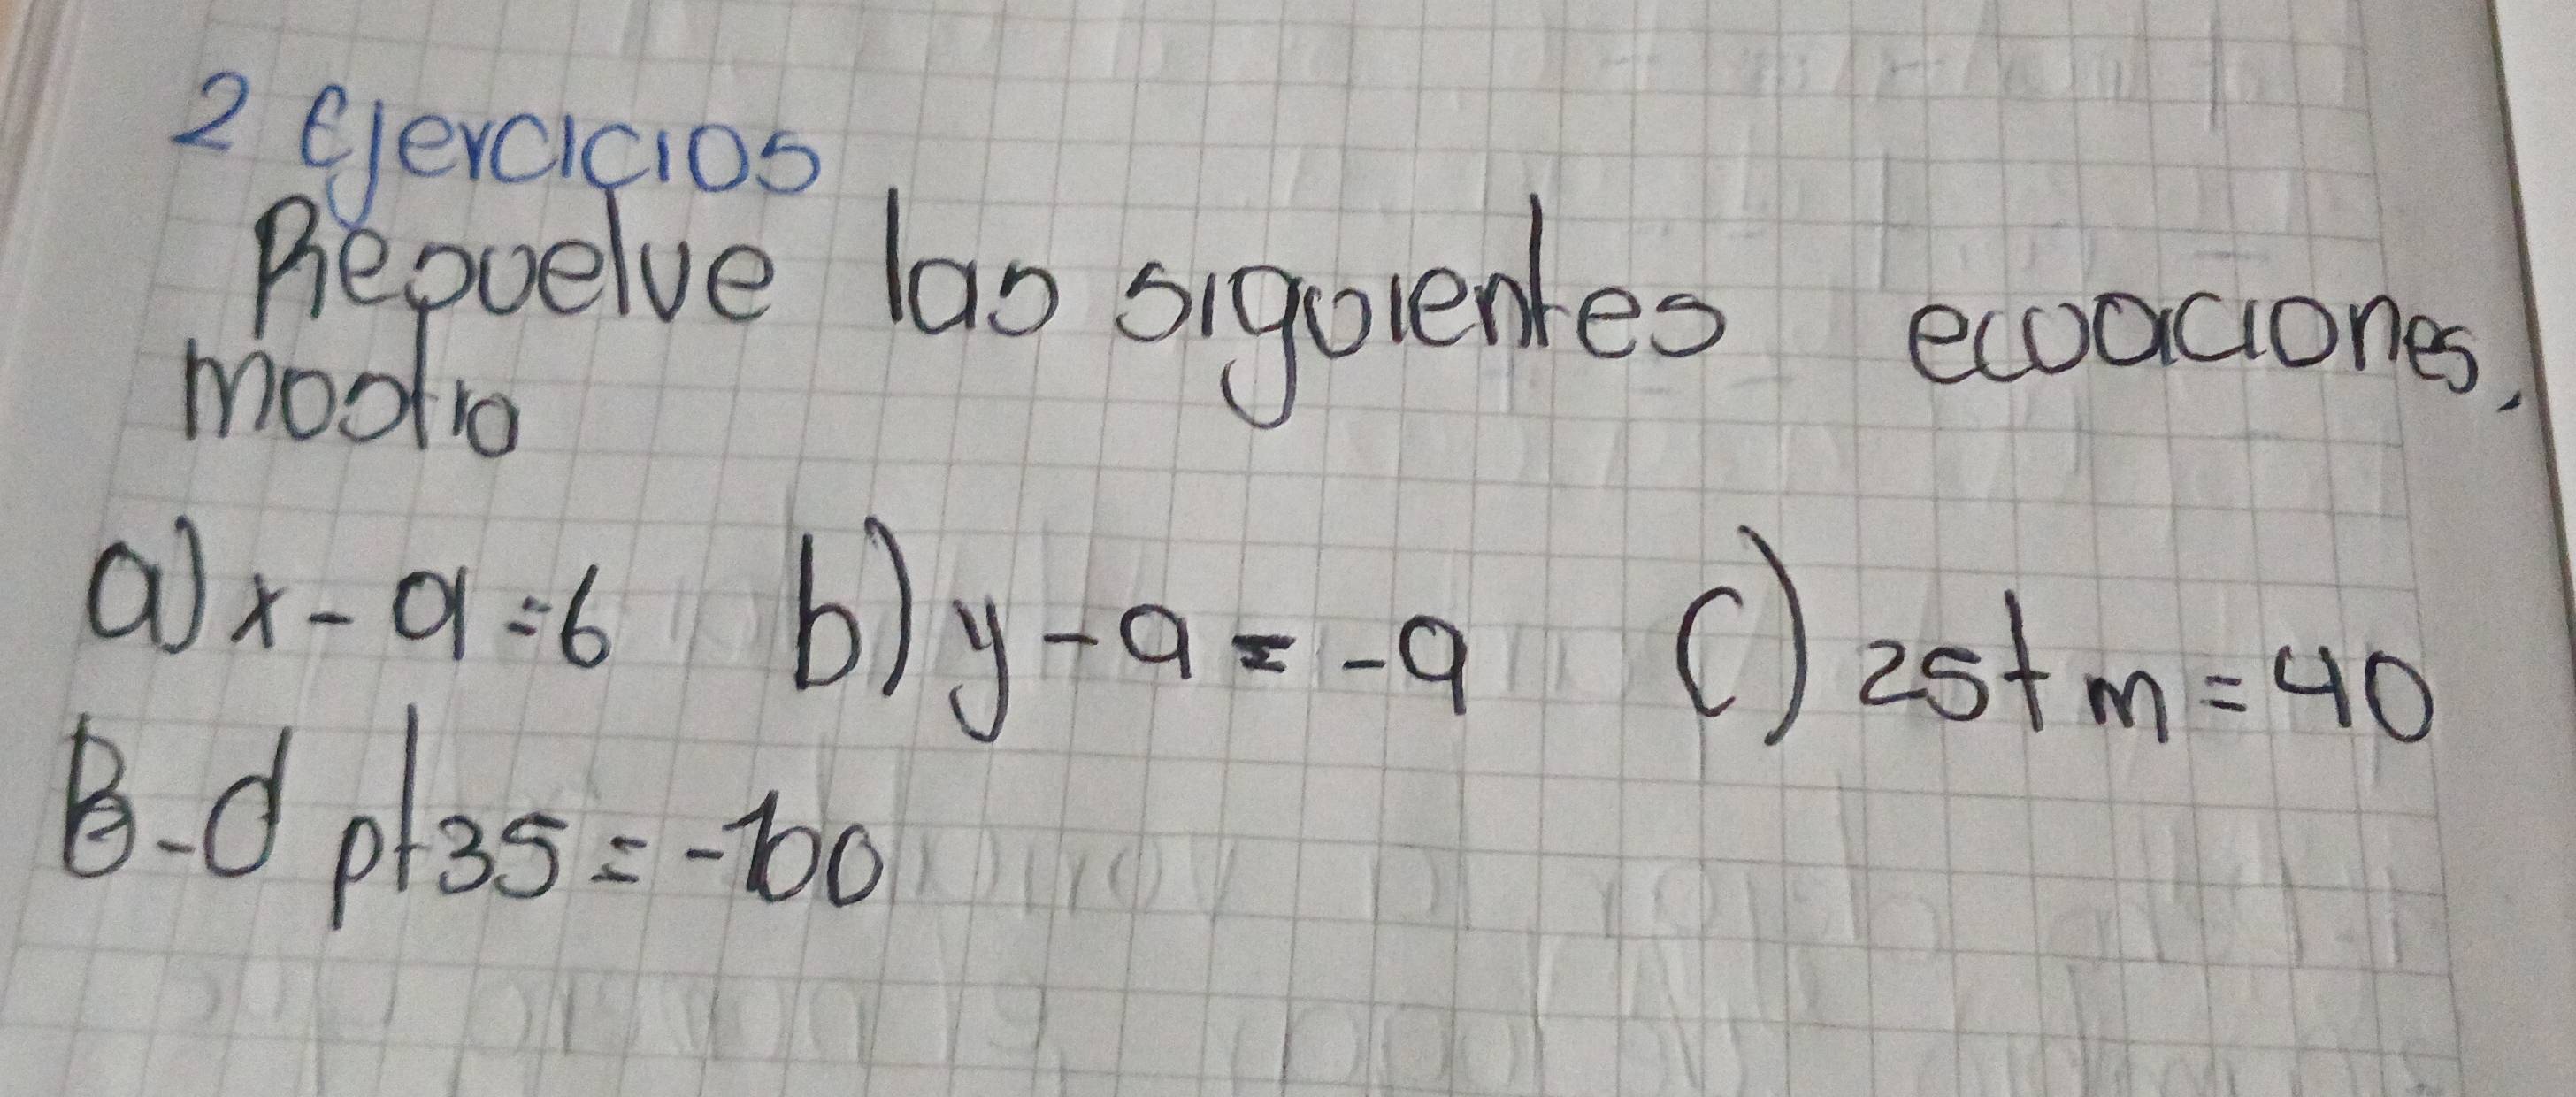 2 Ejercicios
Resuelve las siguientes ecuaciones.
mostra
a) x - 9 = 6 b) y - 9 = -9 c) 25 + m = 40
B-d p + 35 = -100